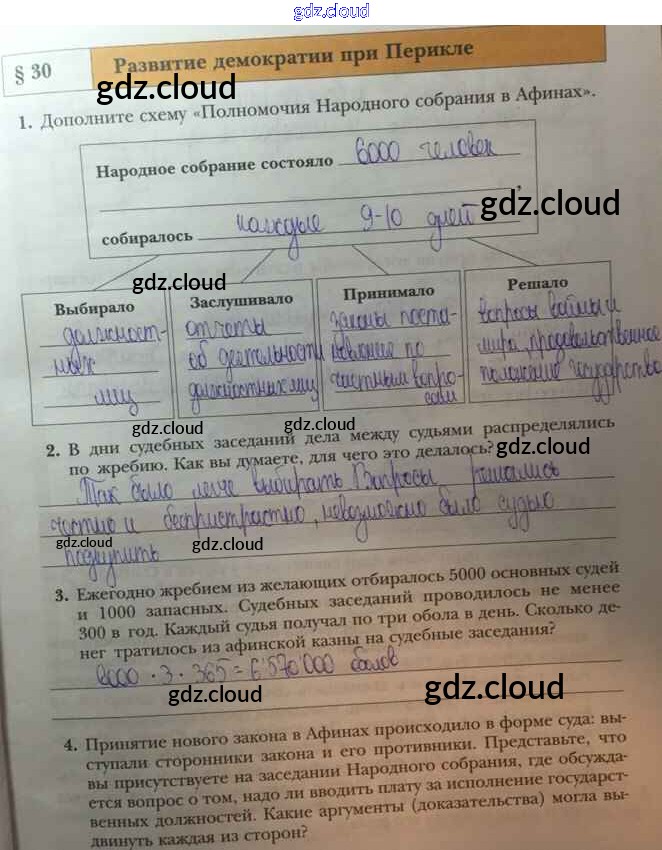 gdz.cloud
§ 30
Развитие демократии при Перикле
gdz.cloud
1. Дополните схему «Полномочия Народного собрания в Афинах».
Народное собрание состояло 6000 человек
,
gdz.cloud
собиралось каждые 9-10 дней
gdz.cloud
Выбирало
должност-
ных
лиц
Заслушивало
отчёты
об деятельности
должностных лиц
Принимало
законы поста-
новление по
частным вопро-
сам
Решало
вопросы войны и
мира, продовольственное
положение государство
gdz.cloud
gdz.cloud
gdz.cloud
2. В дни судебных заседаний дела между судьями распределялись
по жребию. Как вы думаете, для чего это делалось?
Так было легче выбирать Вопросы решались
честно и беспристрастно, невозможно было судью
подкупить
gdz.cloud
gdz.cloud
gdz.cloud
3. Ежегодно жребием из желающих отбиралось 5000 основных судей
и 1000 запасных. Судебных заседаний проводилось не менее
300 в год. Каждый судья получал по три обола в день. Сколько де-
нег тратилось из афинской казны на судебные заседания?
6000 · 3 · 365 = 6'570'000 обалов
gdz.cloud
gdz.cloud
4. Принятие нового закона в Афинах происходило в форме суда: вы-
ступали сторонники закона и его противники. Представьте, что
вы присутствуете на заседании Народного собрания, где обсужда-
ется вопрос о том, надо ли вводить плату за исполнение государст-
венных должностей. Какие аргументы (доказательства) могла вы-
двинуть каждая из сторон?